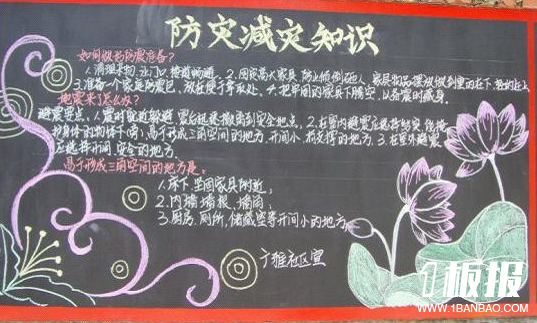 防灾减灾知识
如何做好防震准备?
1.清理杂物,让门口、楼道畅通。2.固定高大家具,防止倾倒砸人,家具物品摆放做到重的在下,轻的在上
3.准备一个家庭防震包,放在便于拿取处。4.把牢固的家具下腾空,以备震时藏身。
地震来了怎么办?
避震要点:1.震时就近躲避,震后迅速撤离到安全地点。2.在室内避震应选择结实、能掩
护身体的物体下(旁)、易于形成三角空间的地方,开间小、有支撑的地方。3.在室外避震
应选择开阔、安全的地方
易于形成三角空间的地方是:
1.床下、坚固家具附近;
2.内墙墙根、墙角;
3.厨房、厕所、储藏室等开间小的地方
雅社区宣
1板报
WWW.1BANBAO.COM